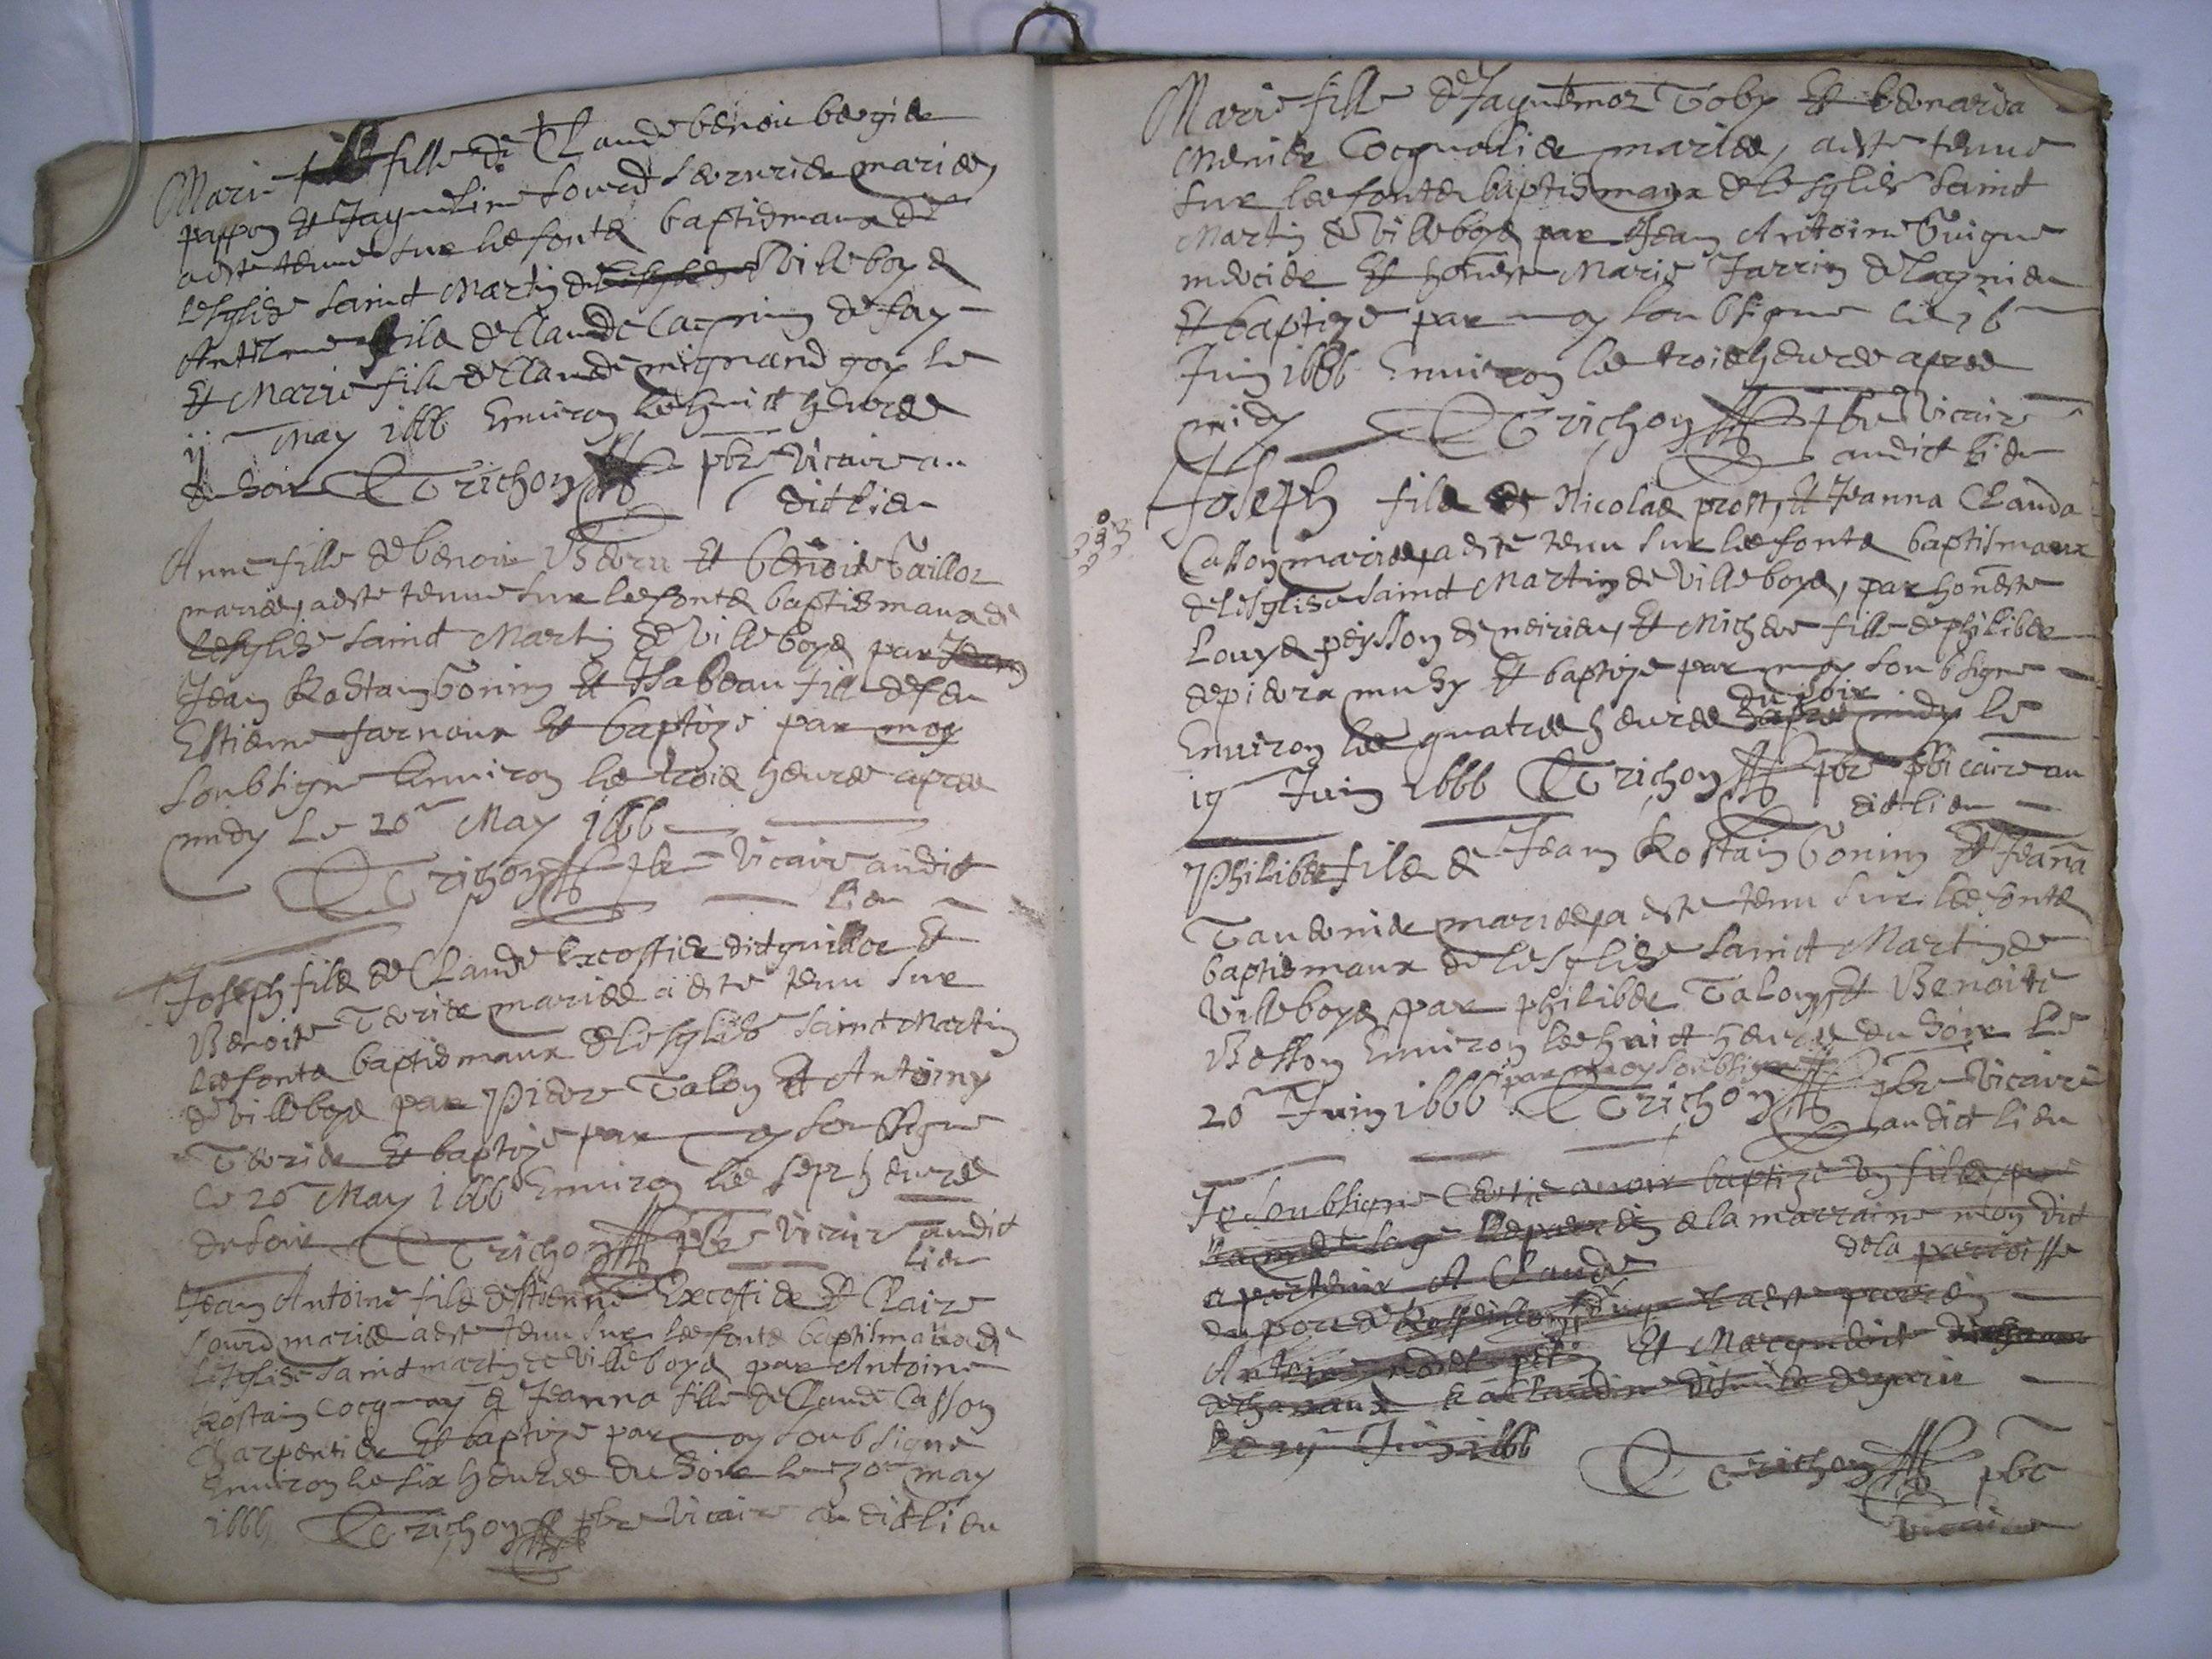 Marie fille de Claude benoit bergier
pappon Et Jaqueline sourd serrurier mariés
a este tenue sur les fonts baptismaux de
lesglise sainct Martin de Villeboys
Anthelme fils de Claude Cagnin de fay
Et Marie fille de Claude mignand goy le
ij May 1666 Environ les huict heures
du soir Trichon pbre Vicaire au
dict lieu
Anne fille de benoit Et benoite Vaillot
mariés, a este tenue sur les fonts baptismaux de
lesglise sainct Martin de Villeboys par
Jean Rostain Gonin Et Isabeau fille de feu
Estienne Jarnoux Et baptizé par moy
soubsigne Environ les trois heures apres
midy Le 20 May 1666
Trichon pbre Vicaire audict
lieu
Joseph fils de Claude Excoffier dict guillot Et
Benoite Terrier mariés a este tenu sur
les fonts baptismaux de lesglise sainct Martin
de villeboys par Pierre Talon Et Antoiny
Terrier Et baptizé par moy soubsigne
Le 20 May 1666 Environ les sept heures
du soir Trichon pbre Vicaire audict
lieu
Jean Antoine fils destienne Excoffier Et Claire
sourd mariés a este tenu sur les fonts baptismaux de
lesglise sainct martin de villeboys par Antoine
Rostain Cocgnay Et Jeanna fille de Claude Casson
Charpentier Et baptizé par moy soubsigne
Environ les six heures du soir le 30 may
1666 Trichon pbre Vicaire audict lieu
Marie fille de Jaquemoz Toby Et bernarda
Menier Cocgnalier mariés, a este tenue
sur les fonts baptismaux de lesglise sainct
Martin de Villeboys par Jean Antoine Guigue
mercier Et honeste Marie Jarrin de Lagnieu
Et baptizé par moy soubsigne ce 16
Juin 1666 Environ les trois heures apres
midy Trichon pbre Vicaire
audict lieu
Joseph fils de Nicolas prost, Et Jeanna Clauda
Casson mariés, a este tenu sur les fonts baptismaux
de lesglise sainct Martin de Villeboys, par honeste
Louys peysson de neirieu, Et Micher fille de philiber
de pierra musy Et baptizé par moy soubsigne
du soir
Environ les quatre heures apres midy le
19 Juin 1666 Trichon pbre vicaire au
dict lieu
Philiber fils de Jean Rostain Gonin Et Jeanna
Tavernier mariés, a este tenu sur les fonts
baptismaux de lesglise sainct Martin de
Villeboys par philiber Talon, Et Benoite
Besson Environ les huict heures du soir Le
par moy soubsigne
20 Juin 1666 Trichon pbre Vicaire
audict lieu
Je soubsigne Certifie avoir baptizé un fils
le parrein Et la marraine mon dict
de la parroisse
apartenir A Claude
du port de Et a este parrein
Et Marguerite
Juin 1666
Trichon pbre
Vicaire